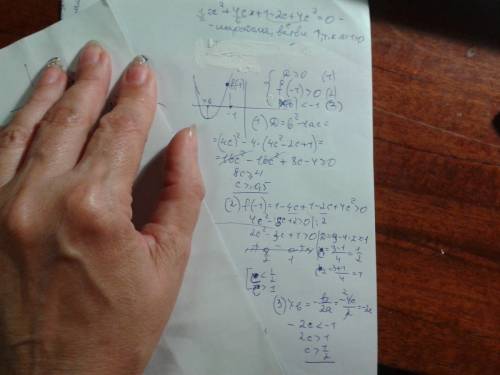 x² + 4cx + 1 - 2c + 4c² = 0 -
- парабола, ветви ↑, т.к. a=1>0
f(-1)
-1
{ D ≥ 0 (1)
f(-1) > 0 (2)
< -1 (3)
(1) D = b² - 4ac =
= (4c)² - 4·(4c² - 2c + 1) =
= 16c² - 16c² + 8c - 4 ≥ 0
8c ≥ 4
c ≥ 0,5
(2) f(-1) = 1 - 4c + 1 - 2c + 4c² > 0
4c² - 6c + 2 > 0 | : 2
2c² - 3c + 1 > 0
D = 9 - 4·2·1 = 1
= 3-1/4 = 1/2
= 3+1/4 = 1
1/2 1
< 1/2
> 1
(3) xв = -b/2a = -4c/2 = -2c
-2c < -1
2c > 1
c > 1/2